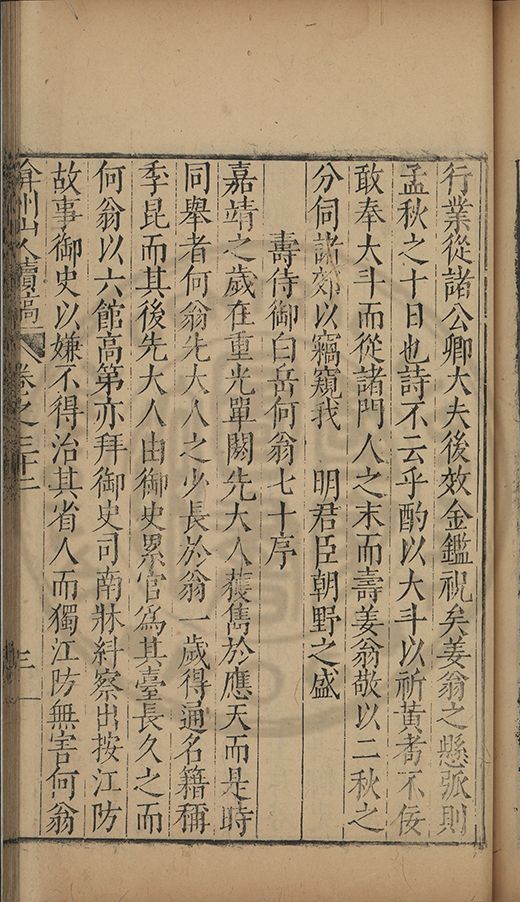 行業從諸公卿大夫後效金鑑祝矣姜翁之懸弧則
孟秋之十日也詩不云乎酌以大斗以祈黃耇不佞
敢奉大斗而從諸門人之末而壽姜翁敬以二秋之
分伺諸郊以竊窺我 明君臣朝野之盛
壽侍御白岳何翁七十序
嘉靖之歲在重光單閼先大人獲雋於應天而是時
同舉者何翁先大人之少長於翁一歲得通名籍稱
季昆而其後先大人由御史累官為其臺長久之而
何翁以六館高第亦拜御史司南牀糾察出按江防
故事御史以嫌不得治其省人而獨江防無害何翁
弇州山人續稿 卷之三十二 三